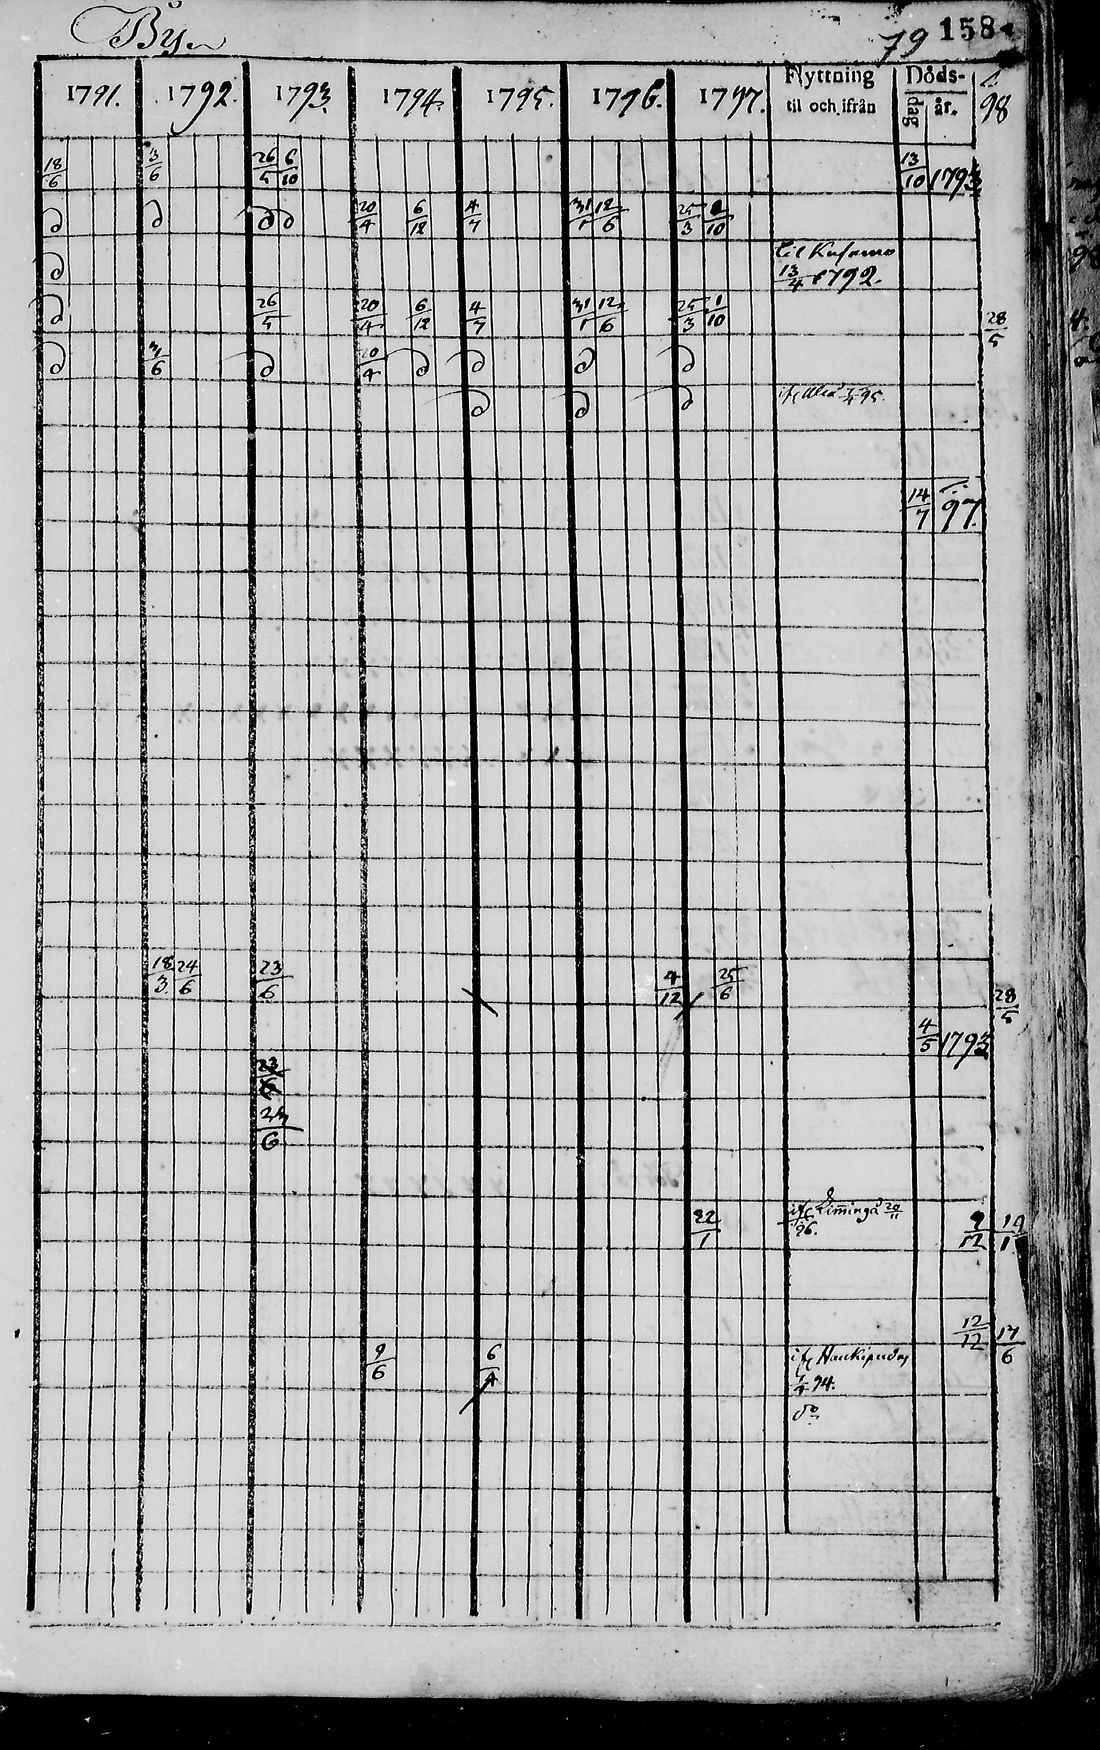 By
79 158
1791. 1792. 1793. 1794. 1795. 1796. 1797. Flyttning Döds-
til och ifrån dag år. 98
18/6 3/6 26/5 6/10 13/10 1793
d d d d 20/4 6/12 4/7 31/1 12/6 25/3 1/10
d til
13/4 1792.
d 26/5 20/4 6/12 4/7 31/1 12/6 25/3 1/10 28/5
d 3/6 d 20/4 d d d d
d d d 95.
14/7 97.
18/3 24/6 23/6 4/12 25/6 28/5
4/5 1793
23/6
23/6
22/1 Limingå 20/11
96. 12
12/12 17/6
9/6 6/4 Haukipudas
94.
do